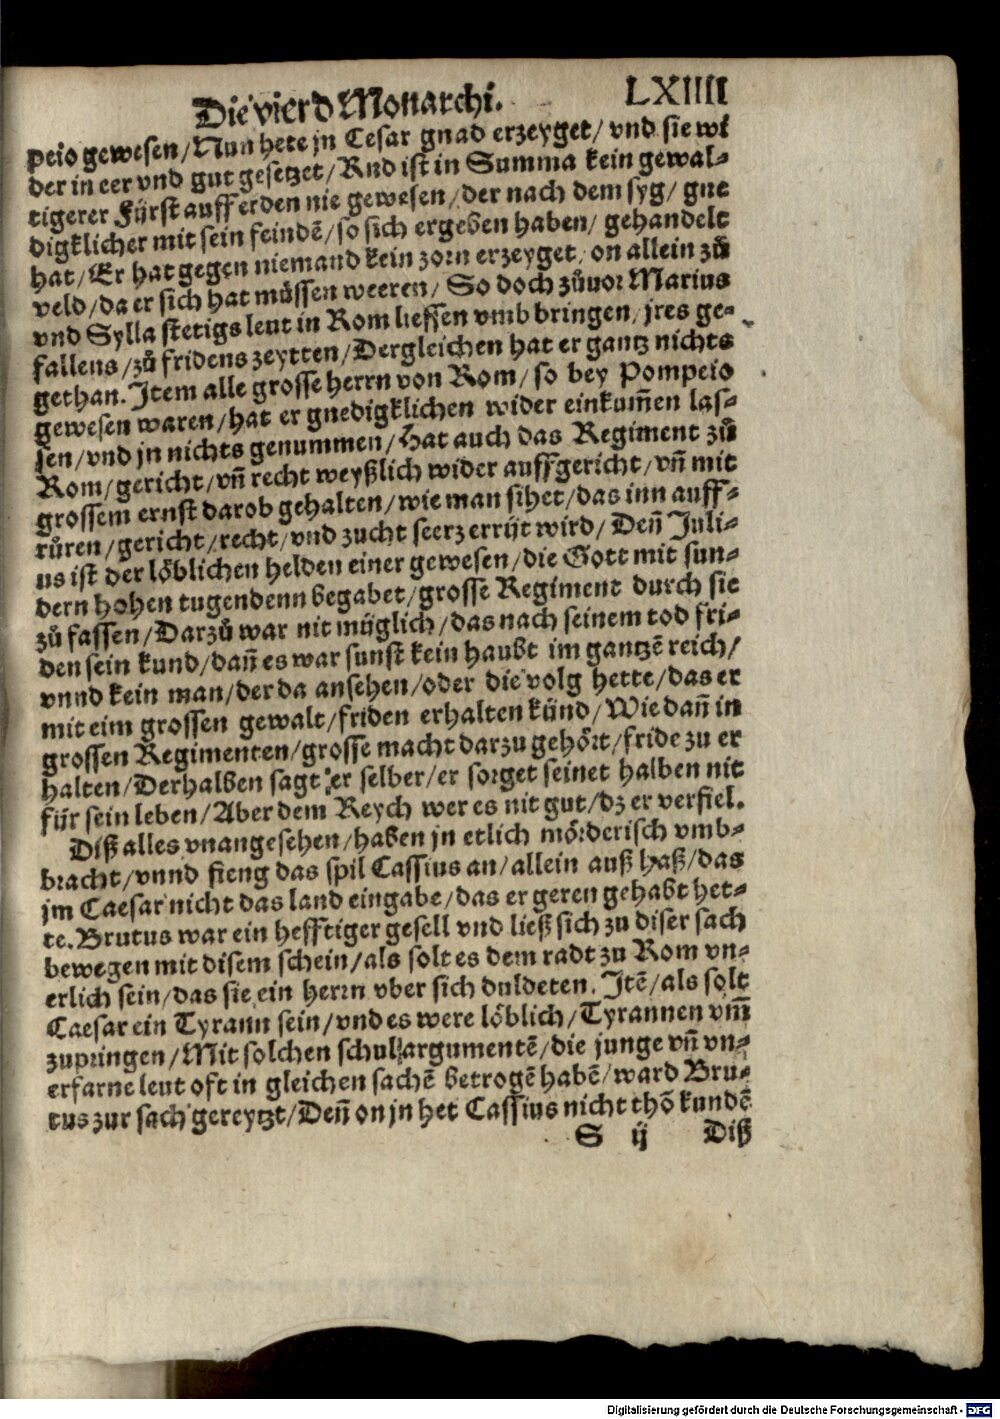 Die vierd Monarchi. LXIIII
peio gewesen/Nun hete jn Cesar gnad erzeyget/ vnd sie wi
der in eer vnd gut gesetzet/Vnd ist in Summa kein gewal-
tigerer Fürst auff erden nie gewesen/der nach dem syg/ gne
digklicher mit sein feindē/so sich ergeben haben/ gehandelt
hat/Er hat gegen niemand kein zorn erzeyget/on allein zů
veld/da er sich hat müssen weeren/ So doch zůuor Marius
vnd Sylla stetigs leut in Rom liessen vmb bringen/jres ge-
fallens/zů fridens zeytten/Dergleichen hat er gantz nichts
gethan. Item alle grosse herrn von Rom/ so bey Pompeio
gewesen waren/hat er gnedigklichen wider einkum̄en las-
sen/vnd jn nichts genummen/Hat auch das Regiment zů
Rom/gericht/vn̄ recht weyßlich wider auffgericht/vn̄ mit
grossem ernst darob gehalten/wie man sihet/das inn auff-
růren/gericht/recht/vnd zucht seer zerrijt wird/ Den̄ Juli-
us ist der löblichen helden einer gewesen/die Gott mit sun-
dern hohen tugendenn begabet/grosse Regiment durch sie
zů fassen/Darzů war nit müglich/das nach seinem tod fri-
den sein kund/dan̄ es war sunst kein haubt im gantzē reich/
vnnd kein man/der da ansehen/oder die volg hette/das er
mit eim grossen gewalt/friden erhalten künd/Wie dan̄ in
grossen Regimenten/grosse macht darzu gehört/fride zu er
halten/Derhalben sagt er selber/er sorget seinet halben nit
für sein leben/Aber dem Reych wer es nit gut/dz er verfiel.
Diß alles vnangesehen/haben jn etlich mörderisch vmb-
bracht/vnnd fieng das spil Cassius an/allein auß haß/das
jm Caesar nicht das land eingabe/das er geren gehabt het-
te. Brutus war ein hefftiger gesell vnd ließ sich zu diser sach
bewegen mit disem schein/als solt es dem radt zu Rom vn-
erlich sein/das sie ein herrn vber sich duldeten. Itē/als solt
Caesar ein Tyrann sein/vnd es were löblich/Tyrannen vm̄
zupringen/Mit solchen schul argumentē/die junge vn̄ vn-
erfarne leut oft in gleichen sachē betrogē habē/ward Bru-
tus zur sach gereytzt/Den̄ on jn het Cassius nicht thō kundē
S ij Diß
Digitalisierung gefördert durch die Deutsche Forschungsgemeinschaft - DFG